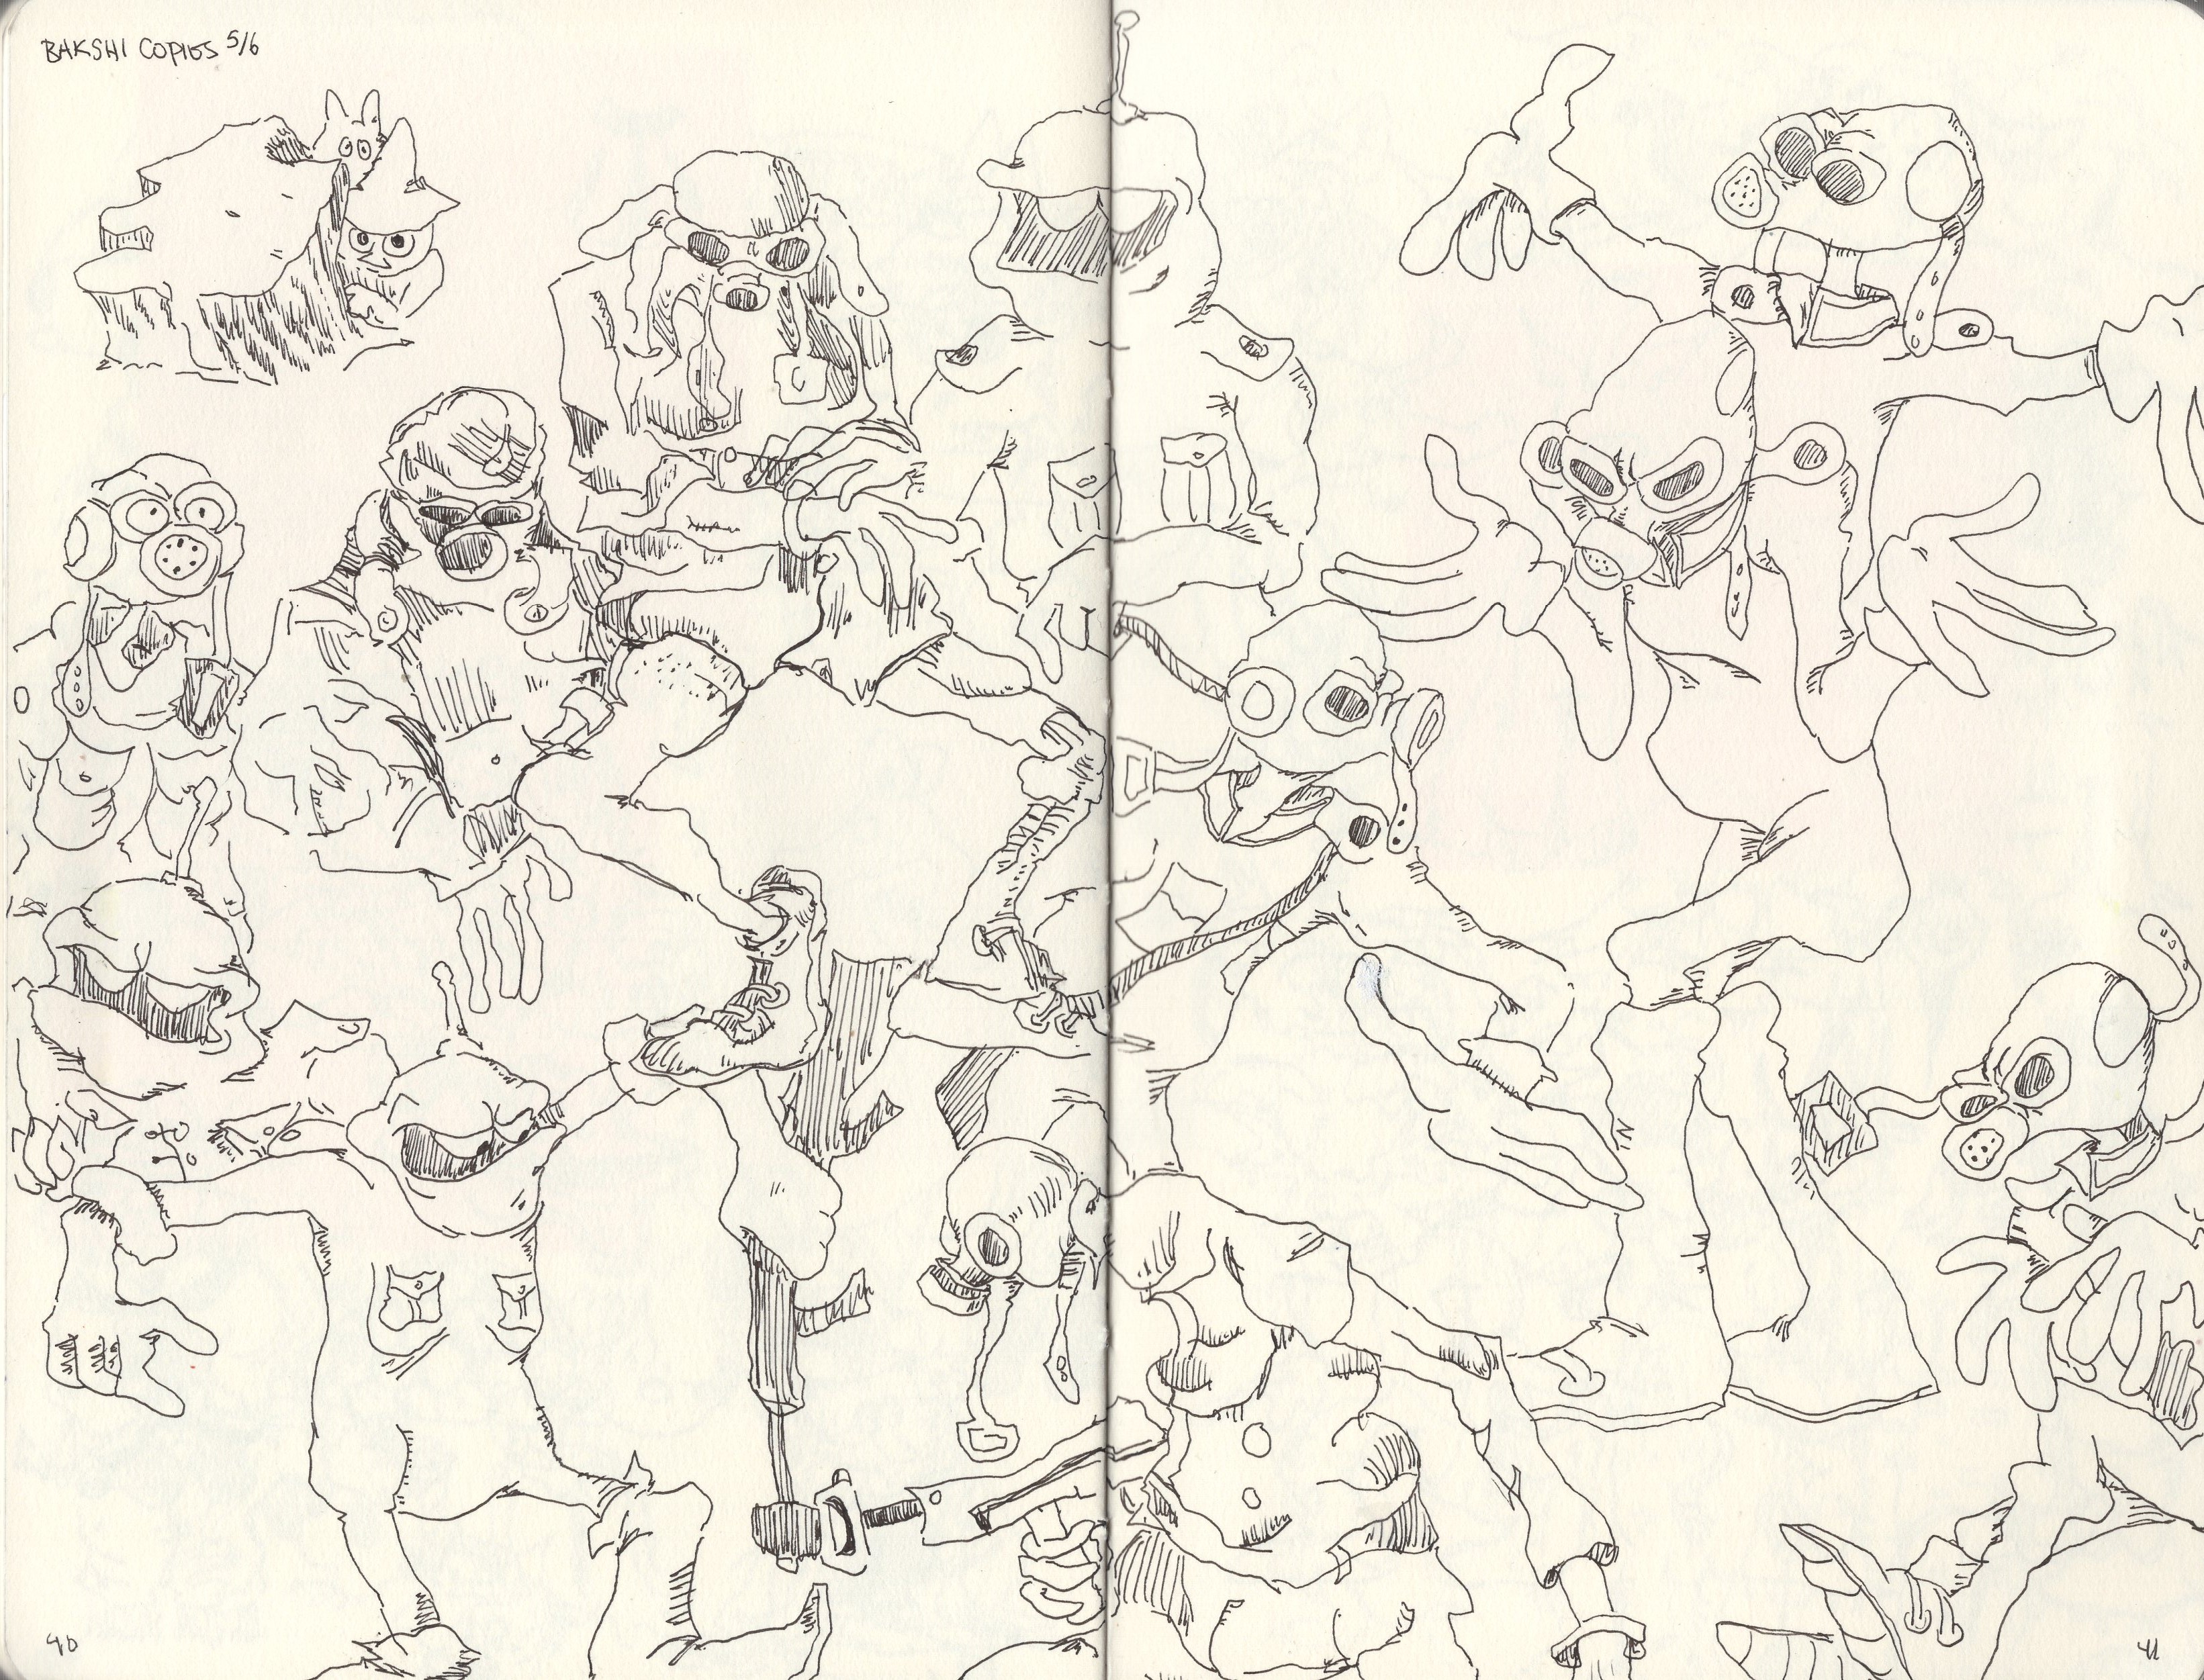 BAKSHI COPIES 5/6
40
41